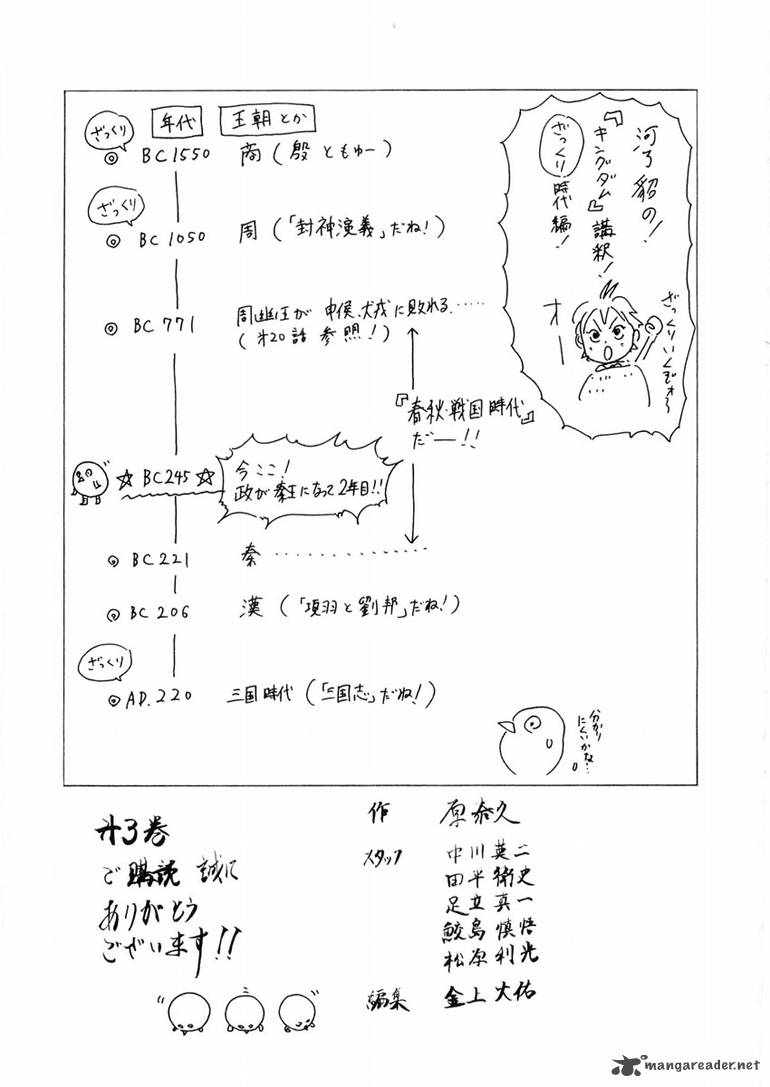 河了貂の!
『キングダム』講釈!
ざっくり時代編!
ざっくりいくぞォ〜
オー
年代 王朝とか
ざっくり
◎ BC1550 商(殷ともゆー)
ざっくり
◎ BC 1050 周(「封神演義」だね!)
◎ BC 771 周幽王が 申侯、犬戎に敗れる……
(才20話 参照!)
『春秋・戦国時代』
だー!!
☆BC245☆ 今ここ!
政が秦王になって2年目!!
◎ BC 221 秦 ……………
◎ BC 206 漢(「項羽と劉邦」だね!)
ざっくり
◎ AD.220 三国時代(「三国志」だね!)
分かり
にくいかな…。
才3巻
ご購読 誠に
ありがとう
ございます!!
作 原泰久
スタッフ 中川英二
田平衛史
足立真一
鮫島慎悟
松原利光
編集 金上大佑
mangareader.net